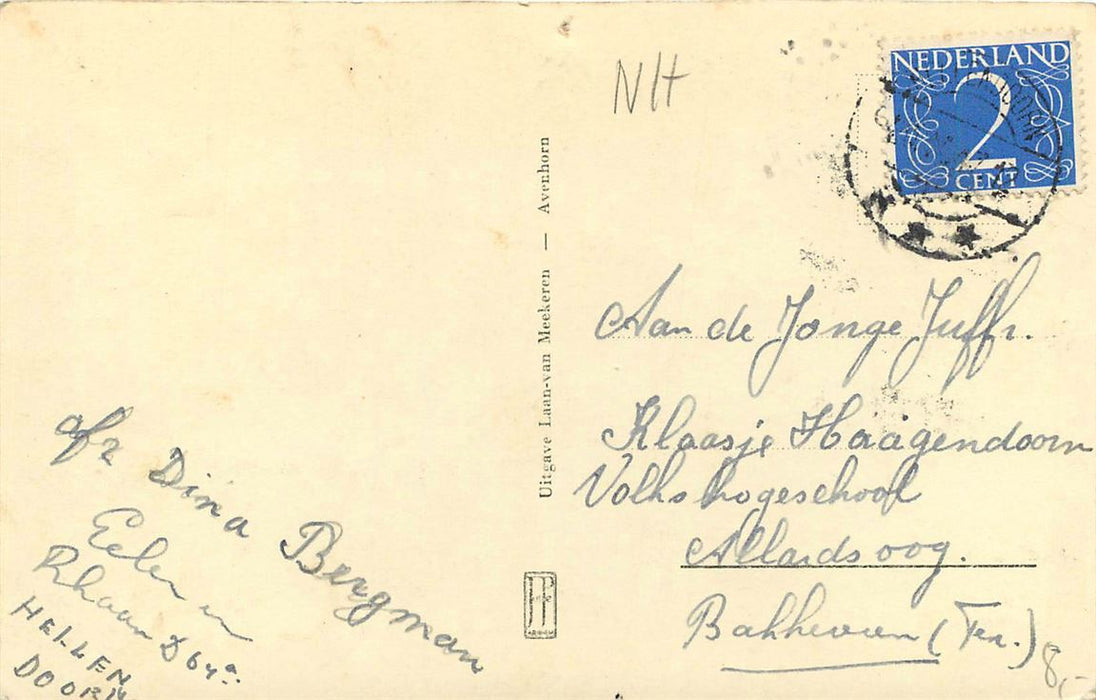 NH
NEDERLAND
2
CENT
Uitgave Laan-van Meekeren — Avenhorn
Aan de Jonge Juffr.
Klaasje Haagendoorn
Volkshogeschool
Allardsoog.
Bakkeveen (Fr.)
8,-
afz Dina Bergman
Eelen en
Rhaan D 64a.
HELLEN
DOORN